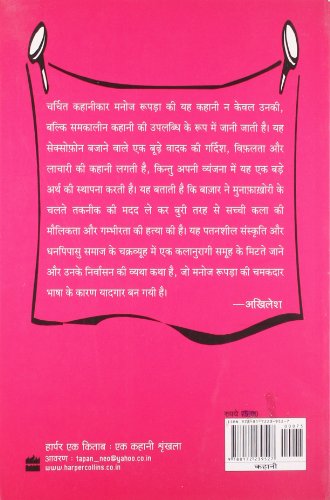 चर्चित कहानीकार मनोज रूपड़ा की यह कहानी न केवल उनकी,
बल्कि समकालीन कहानी की उपलब्धि के रूप में जानी जाती है। यह
सेक्सोफ़ोन बजाने वाले एक बूढ़े वादक की गर्दिश, विफलता और
लाचारी की कहानी लगती है, किन्तु अपनी व्यंजना में यह एक बड़े
अर्थ की स्थापना करती है। यह बताती है कि बाज़ार ने मुनाफ़ाखोरी के
चलते तकनीक की मदद ले कर बुरी तरह से सच्ची कला की
मौलिकता और गम्भीरता की हत्या की है। यह पतनशील संस्कृति और
धनपिपासु समाज के चक्रव्यूह में एक कलानुरागी समूह के मिटते जाने
और उनके निर्वासन की व्यथा कथा है, जो मनोज रूपड़ा की चमकदार
भाषा के कारण यादगार बन गयी है।
—अखिलेश
हार्पर एक किताब : एक कहानी शृखला
आवरण : tapan_neo@yahoo.co.in
www.harpercollins.co.in
कहानी